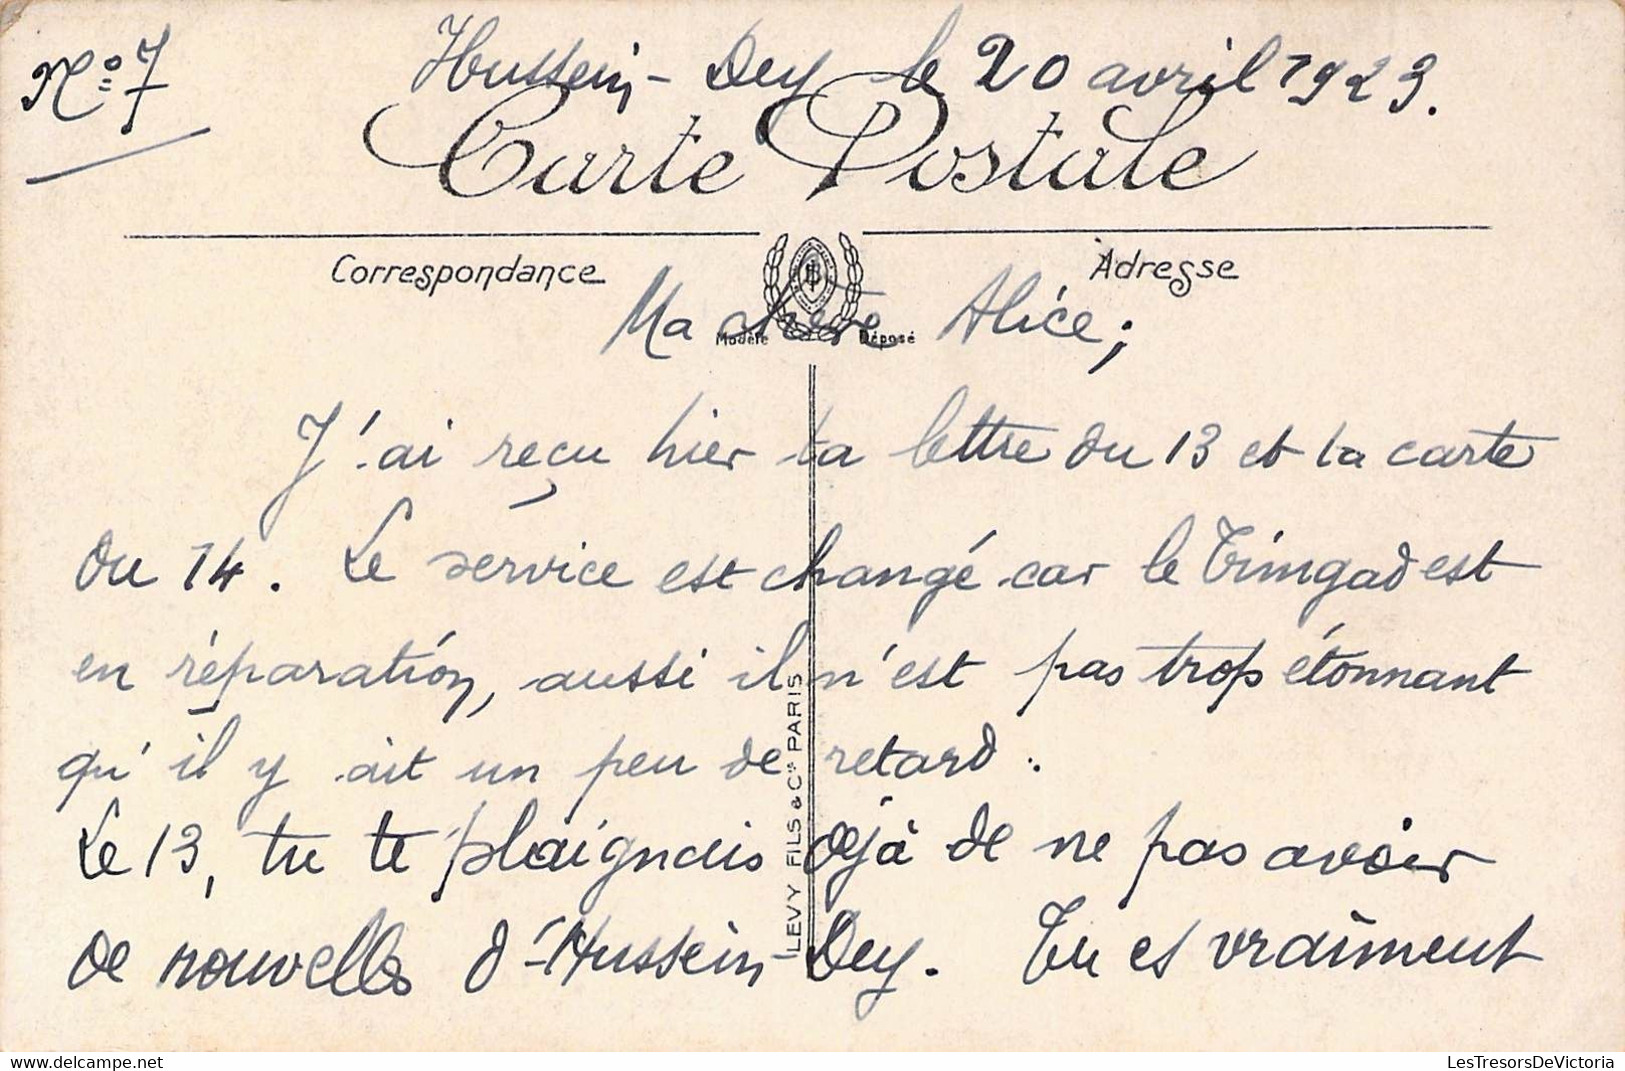 N° 7
Hussein-Dey le 20 avril 1923.
Carte Postale
Correspondance
Adresse
Ma chère Alice,
Modèle Déposé
J'ai reçu hier ta lettre du 13 et ta carte
du 14. Le service est changé car le Timgad est
en réparation, aussi il n'est pas trop étonnant
qu'il y ait un peu de retard.
Le 13, tu te plaignais déjà de ne pas avoir
de nouvelles d'Hussein-Dey. Tu es vraiment
LEVY FILS & Cie PARIS
LesTresorsDeVictoria